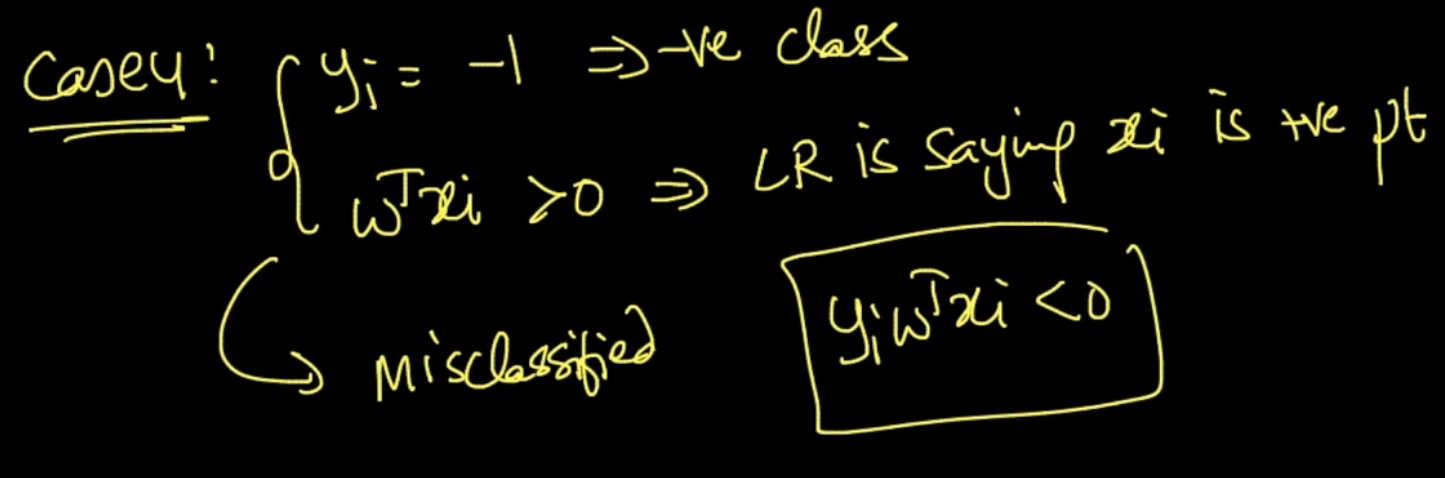 Case4: yi = -1 ⇒ -ve class
wᵀxi >0 ⇒ LR is saying xi is +ve pt
Misclassified
yiwᵀxi <0